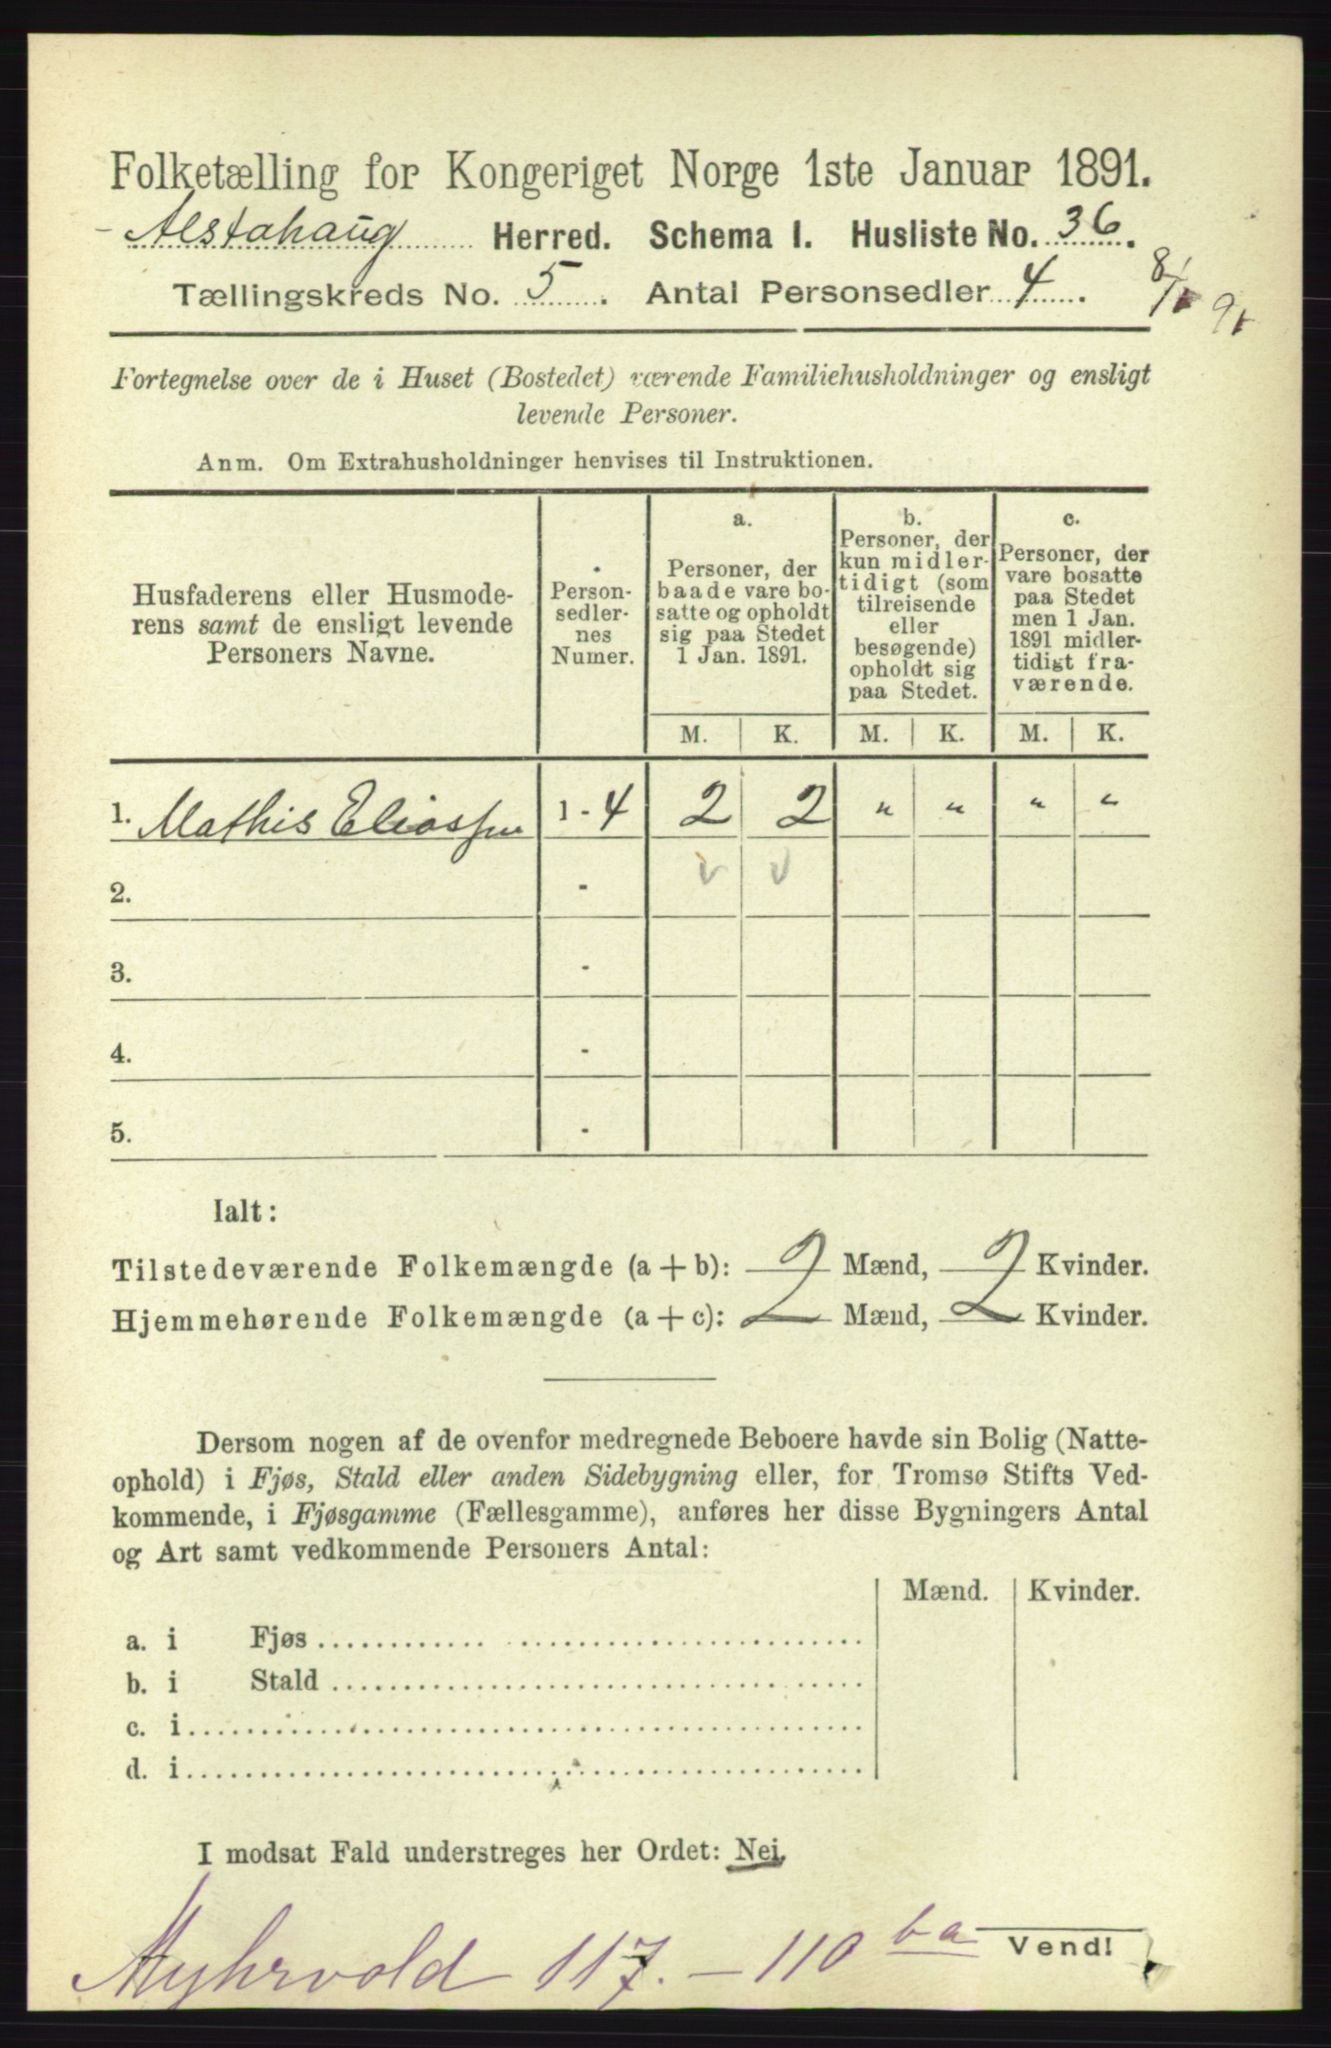 Folketælling for Kongeriget Norge 1ste Januar 1891.
Alstahaug Herred. Schema I. Husliste No. 36.
Tællingskreds No. 5. Antal Personsedler 4.
Fortegnelse over de i Huset (Bostedet) værende Familiehusholdninger og ensligt
levende Personer.
Anm. Om Extrahusholdninger henvises til Instruktionen.
Husfaderens eller Husmode-
rens samt de ensligt levende
Personers Navne.
Person-
sedler-
nes
Numer.
a.
Personer, der
baade vare bo-
satte og opholdt
sig paa Stedet
1 Jan. 1891.
b.
Personer, der
kun midler-
tidigt (som
tilreisende
eller
besøgende)
opholdt sig
paa Stedet.
c.
Personer, der
vare bosatte
paa Stedet
men 1 Jan.
1891 midler-
tidigt fra-
værende.
M. K. M. K. M. K.
1. Mathis Eliassen 1-4 2 2 " " " "
2. -
3. -
4. -
5. -
Ialt:
Tilstedeværende Folkemængde (a+b): 2 Mænd, 2 Kvinder.
Hjemmehørende Folkemængde (a+c): 2 Mænd, 2 Kvinder.
Dersom nogen af de ovenfor medregnede Beboere havde sin Bolig (Natte-
ophold) i Fjøs, Stald eller anden Sidebygning eller, for Tromsø Stifts Ved-
kommende, i Fjøsgamme (Fællesgamme), anføres her disse Bygningers Antal
og Art samt vedkommende Personers Antal:
Mænd. Kvinder.
a. i Fjøs
b. i Stald
c. i
d. i
I modsat Fald understreges her Ordet: Nei.
Vend!
Myhrvold 117. - 110 ba